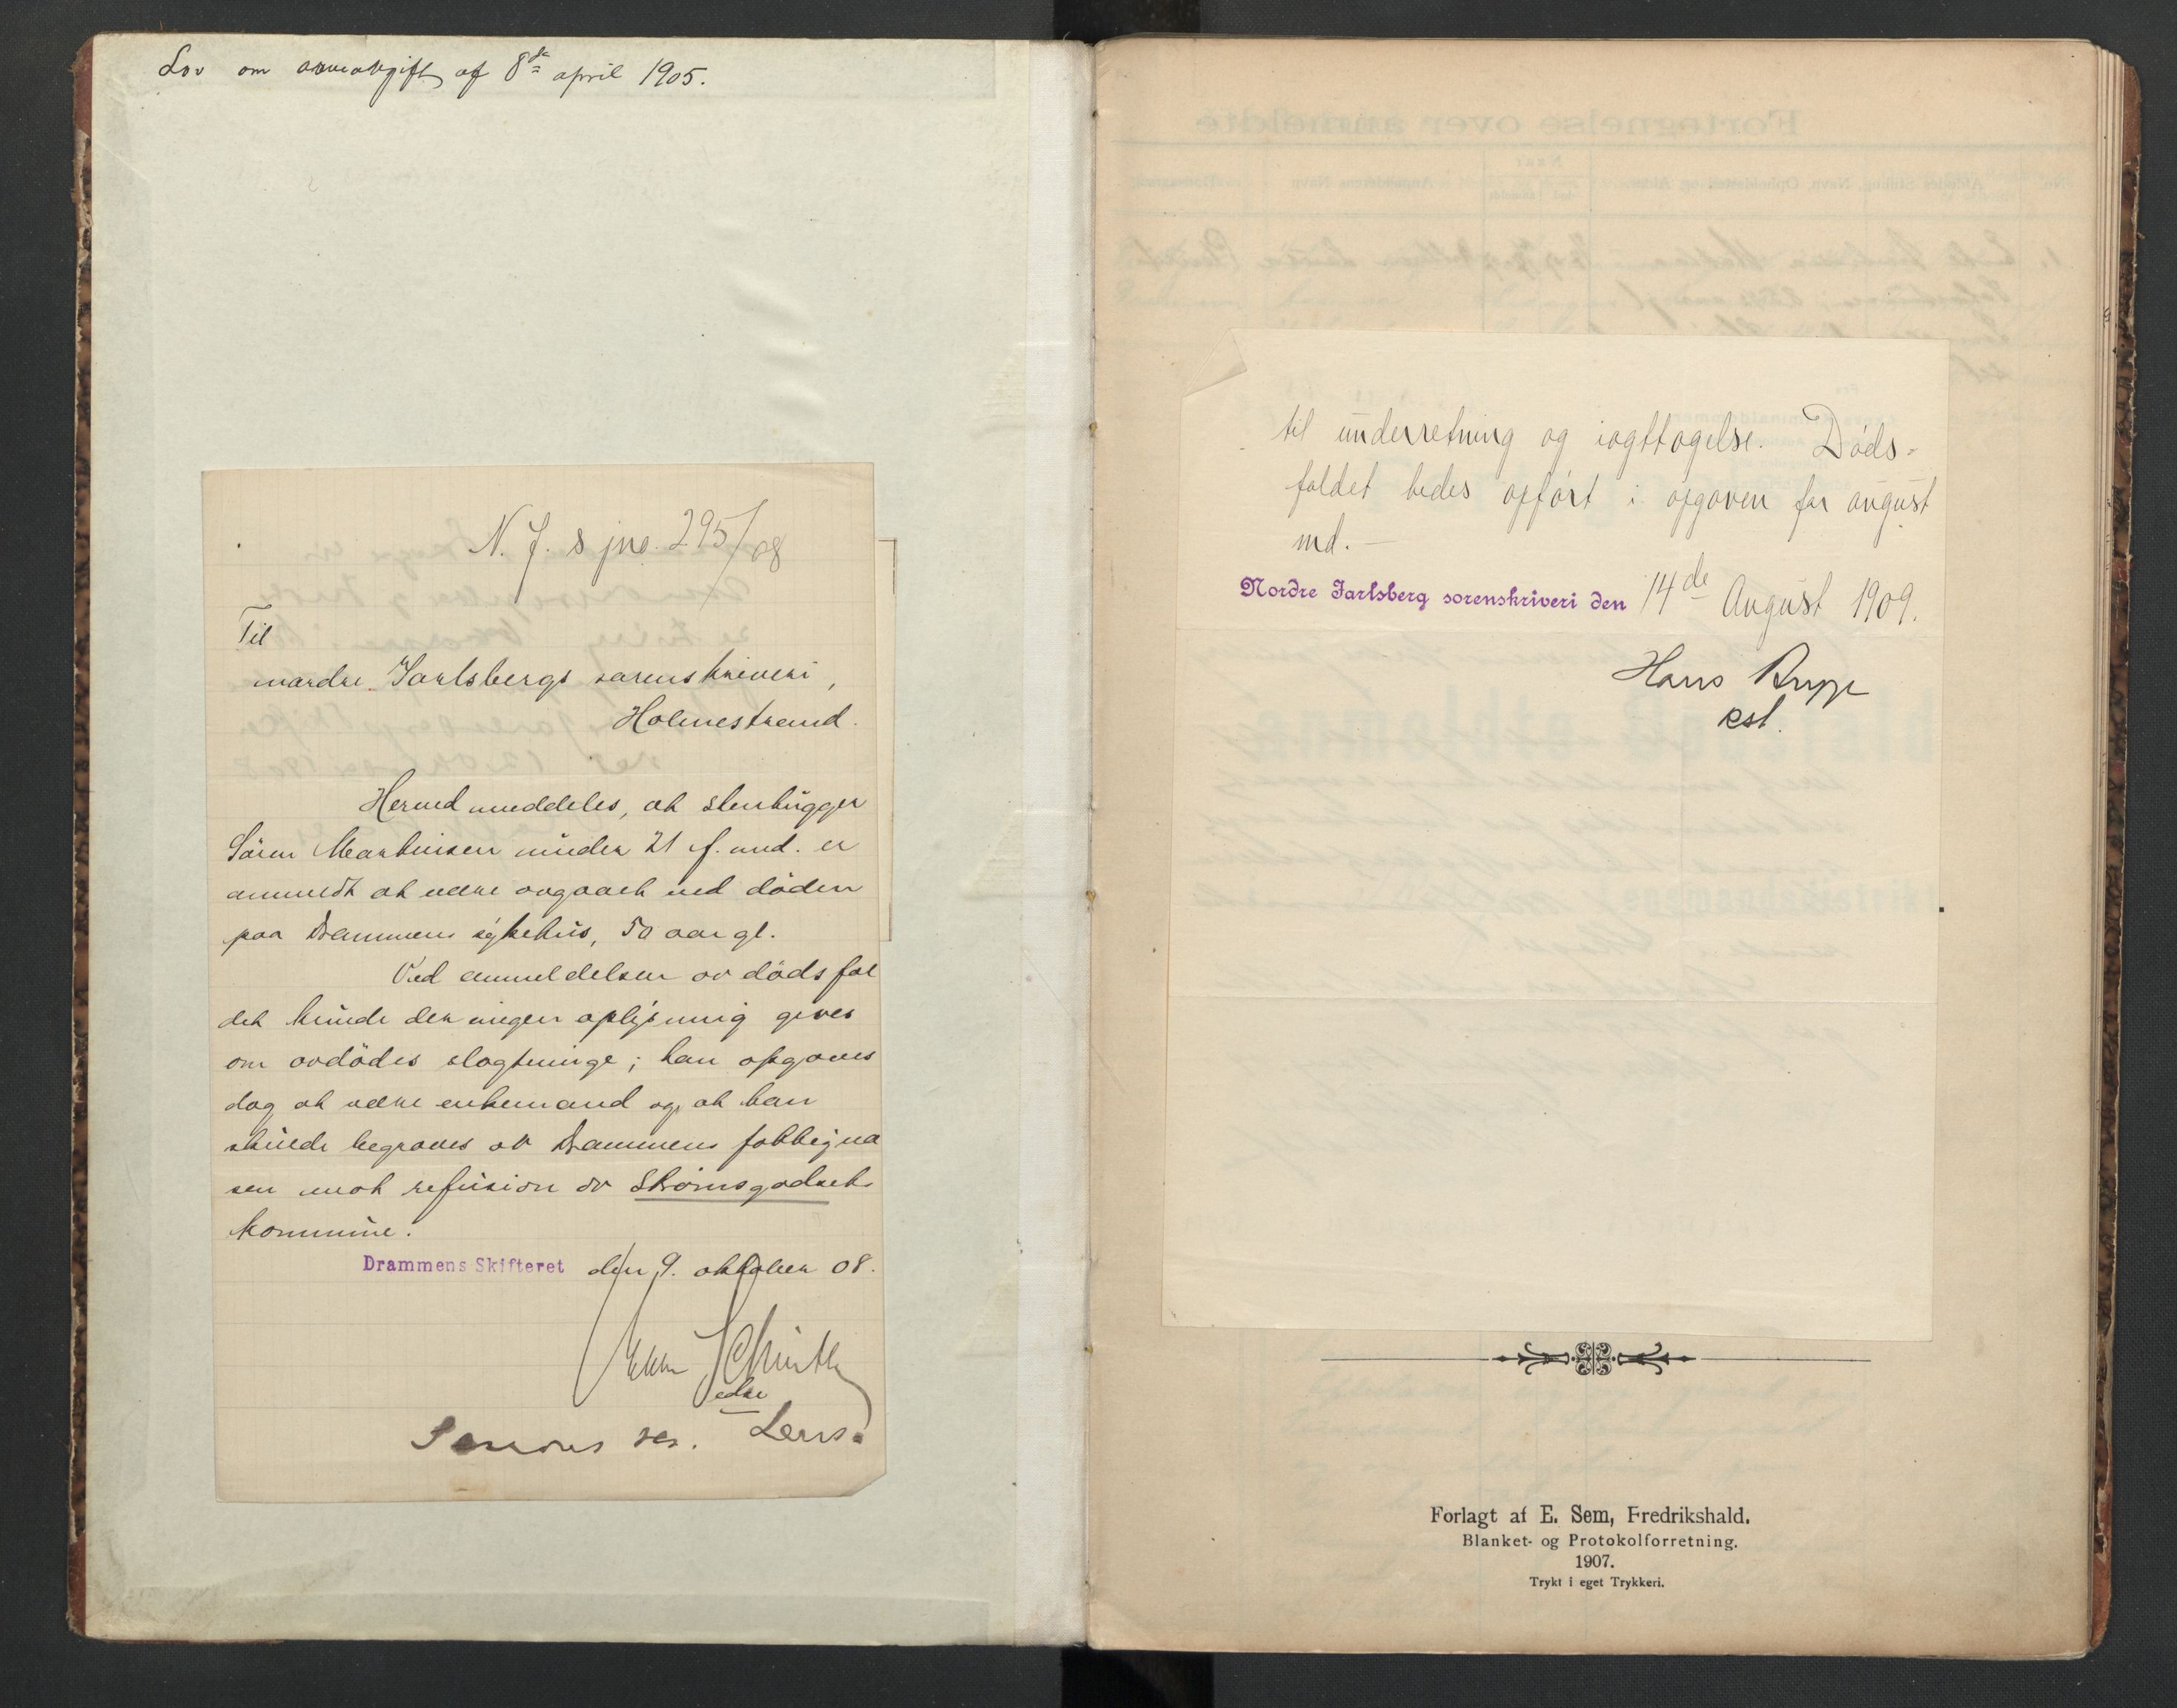 Lov om arveavgift af 8de april 1905.
N. J. s jno. 295/08
Til
nordre Jarlsbergs sorenskriveri,
Holmestrand.
Herved meddeles, at stenhugger
Sören Martinsen under 21 f. md. er
anmeldt at være avgaaet ved döden
paa Drammens sykehus, 50 aar gl.
Ved anmeldelsen av dödsfal
det kunde der ingen oplysning gives
om avdödes slagtninge; han opgaves
dog at være enkemand og at han
skulde begraves av Drammens fattigva
sen mot refusion av Skoinsgodsets
kommune.
Drammens Skifteret den 9. oktober 08.
edse
Lens.
til underretning og iagttagelse. Döds-
faldet bedes opfört i opgaven for august
md. —
Nordre Jarlsberg sorenskriveri den 14de August 1909.
Hans
kst.
Forlagt af E. Sem, Fredrikshald.
Blanket- og Protokolforretning.
1907.
Trykt i eget Trykkeri.